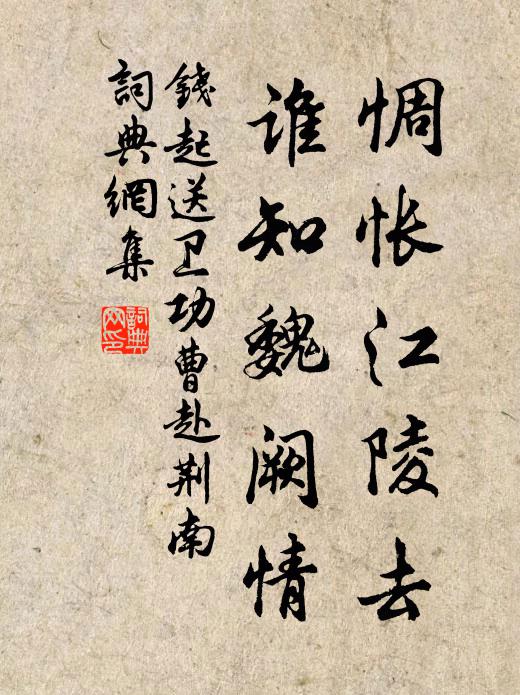 惆怅江陵去
谁知魏阙情
錢起送卫功曹赴荆南
詞典網集
詞典
网印